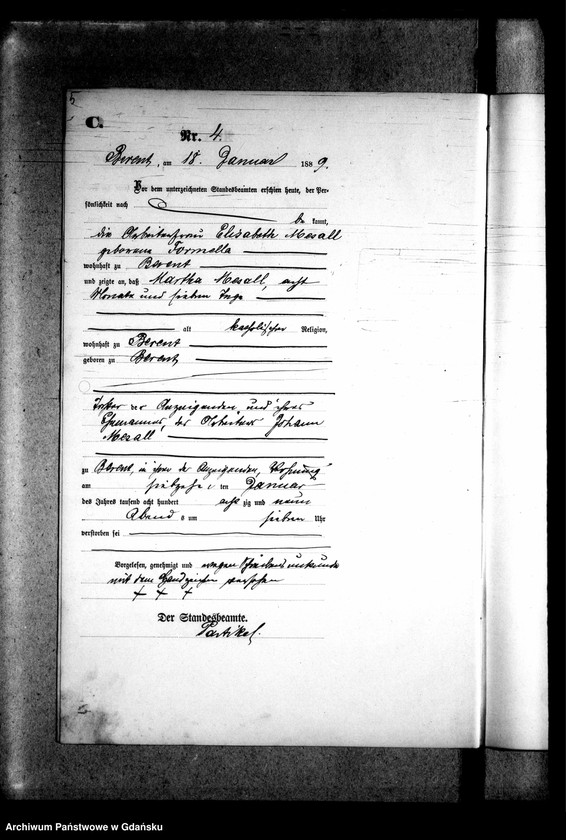 5
C.
Nr. 4.
Berent, am 18. Januar 1889.
Vor dem unterzeichneten Standesbeamten erschien heute, der Per-
sönlichkeit nach
be kannt,
die Arbeiterfrau Elisabeth Mesall
geborene Formella
wohnhaft zu Berent
und zeigte an, daß Martha Mesall, acht
Monate und sieben Tage
alt katholischer Religion,
wohnhaft zu Berent
geboren zu Berent
Tochter der Anzeigenden und ihres
Ehemannes, des Arbeiters Johann
Mesall
zu Berent, in ihrer der Anzeigenden, Wohnung
am siebzehnten Januar
des Jahres tausend acht hundert acht zig und neun
Abend s um sieben Uhr
verstorben sei
Vorgelesen, genehmigt und wegen Schreibensunkunde
mit dem Handzeichen versehen
+ + +
Der Standesbeamte.
Partikel.
Archiwum Państwowe w Gdańsku